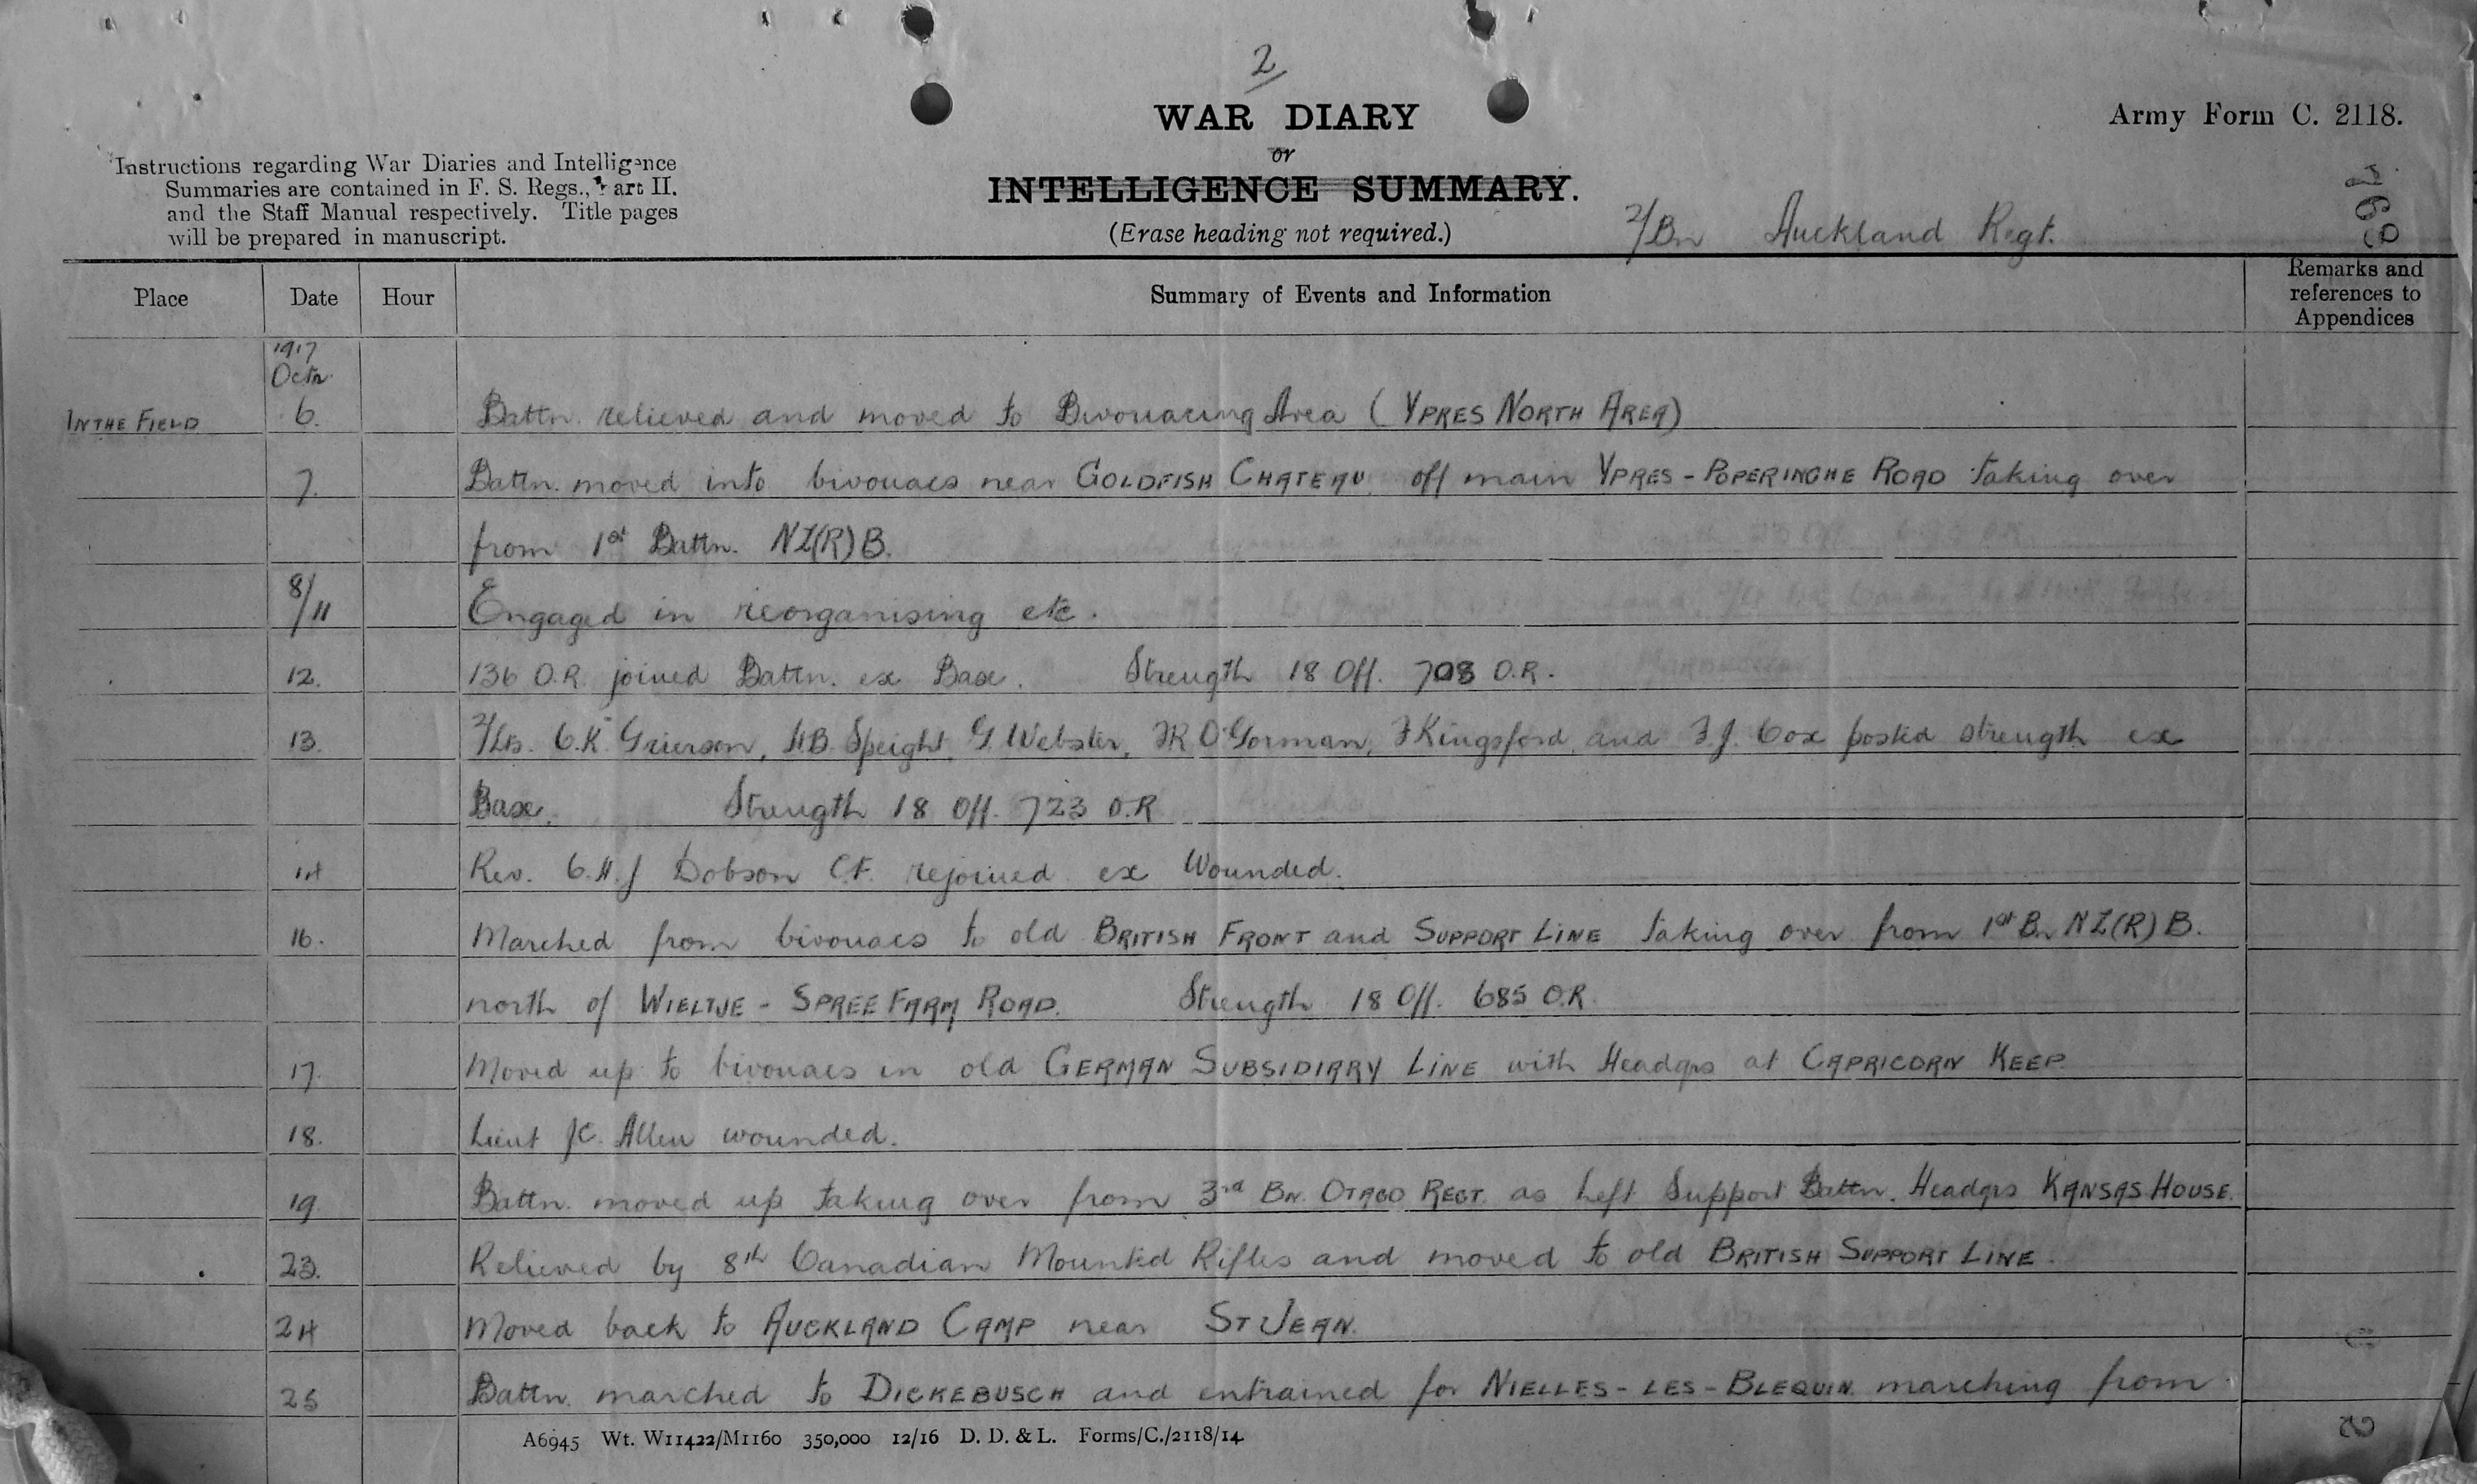 2/
WAR DIARY
or
INTELLIGENCE SUMMARY.
(Erase heading not required.)
Army Form C. 2118.
Instructions regarding War Diaries and Intelligence
Summaries are contained in F. S. Regs., Part II.
and the Staff Manual respectively. Title pages
will be prepared in manuscript.
2/Bn Auckland Regt.
Place Date Hour Summary of Events and Information Remarks and references to Appendices
1917
Octr.
IN THE FIELD 6. Battn. relieved and moved to Bivouacing Area (YPRES NORTH AREA)
7. Battn. moved into bivouacs near GOLDFISH CHATEAU off main YPRES - POPERINGHE ROAD taking over
from 1st Battn. NZ(R)B.
8/11 Engaged in reorganising etc.
12. 136 O.R. joined Battn. ex Base. Strength 18 Off. 703 O.R.
13. 2/Lts. C.K. Grierson, H.B. Speight, G. Webster, O'Gorman, F Kingsford, and F.J. Cox posted strength ex
Base. Strength 18 Off. 723 O.R
14 Rev. C.H.J Dobson C.F. rejoined ex Wounded.
16. Marched from bivouacs to old BRITISH FRONT and SUPPORT LINE taking over from 1st Bn NZ(R)B.
north of WIELTJE - SPREE FARM ROAD. Strength 18 Off. 685 O.R.
17. Moved up to bivouacs in old GERMAN SUBSIDIARY LINE with Headqrs at CAPRICORN KEEP.
18. Lieut J.C. Allen wounded.
19. Battn. moved up taking over from 3rd BN. OTAGO REGT. as Left Support Battn. Headqrs KANSAS HOUSE.
23. Relieved by 8th Canadian Mounted Rifles and moved to old BRITISH SUPPORT LINE.
24 Moved back to AUCKLAND CAMP near ST JEAN.
25 Battn. marched to DICKEBUSCH and entrained for NIELLES - LES - BLEQUIN marching from
A6945 Wt. W11422/M1160 350,000 12/16 D. D. & L. Forms/C./2118/14